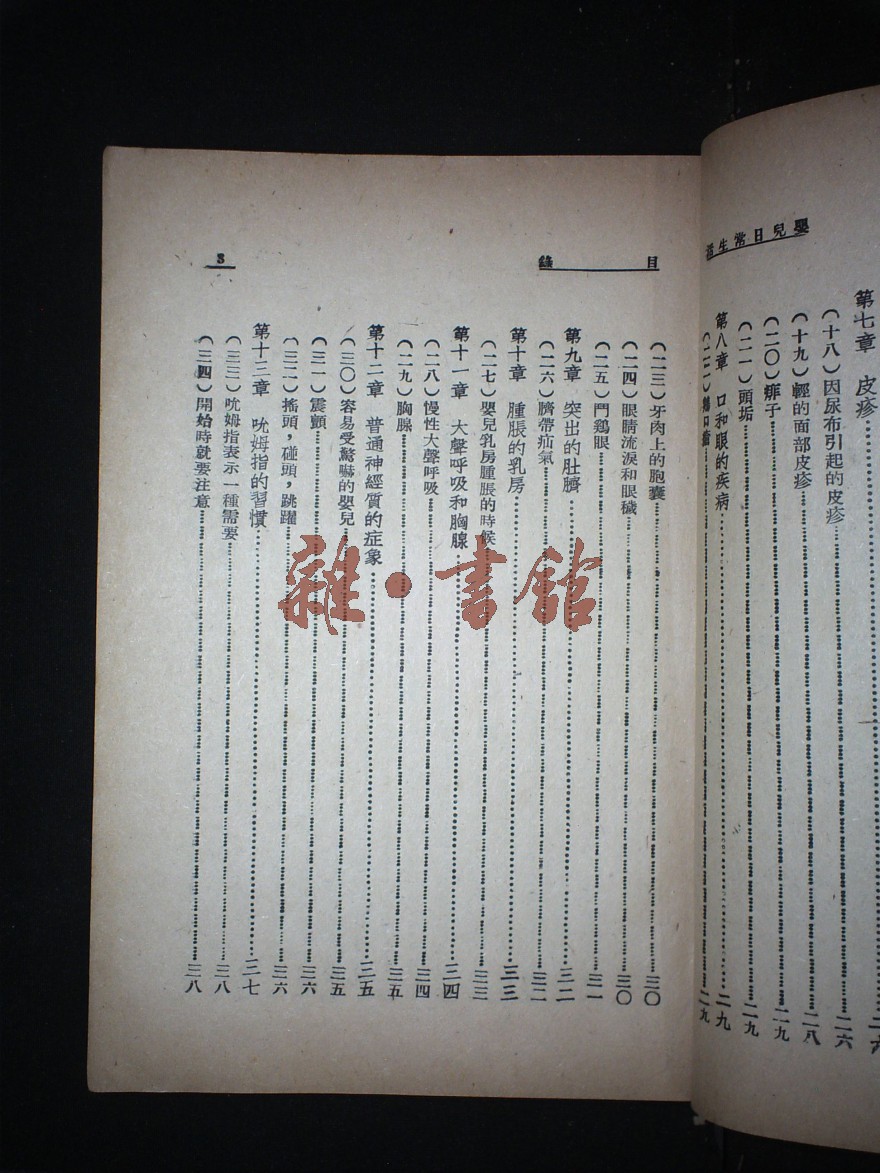 嬰兒日常生活
第七章　皮疹……二六
（十八）因尿布引起的皮疹……二六
（十九）輕的面部皮疹……二八
（二〇）痱子……二九
（二一）頭垢……二九
第八章　口和眼的疾病……二九
（二二）鵝口瘡……二九
目錄
3
（二三）牙肉上的胞囊……三〇
（二四）眼睛流淚和眼穢……三〇
（二五）鬥鷄眼……三一
第九章　突出的肚臍……三二
（二六）臍帶疝氣……三二
第十章　腫脹的乳房……三三
（二七）嬰兒乳房腫脹的時候……三三
第十一章　大聲呼吸和胸腺……三四
（二八）慢性大聲呼吸……三四
（二九）胸腺……三五
第十二章　普通神經質的症象……三五
（三〇）容易受驚嚇的嬰兒……三五
（三一）震顫……三六
（三二）搖頭，碰頭，跳躍……三六
第十三章　吮姆指的習慣……三七
（三三）吮姆指表示一種需要……三八
（三四）開始時就要注意……三八
雜·書館